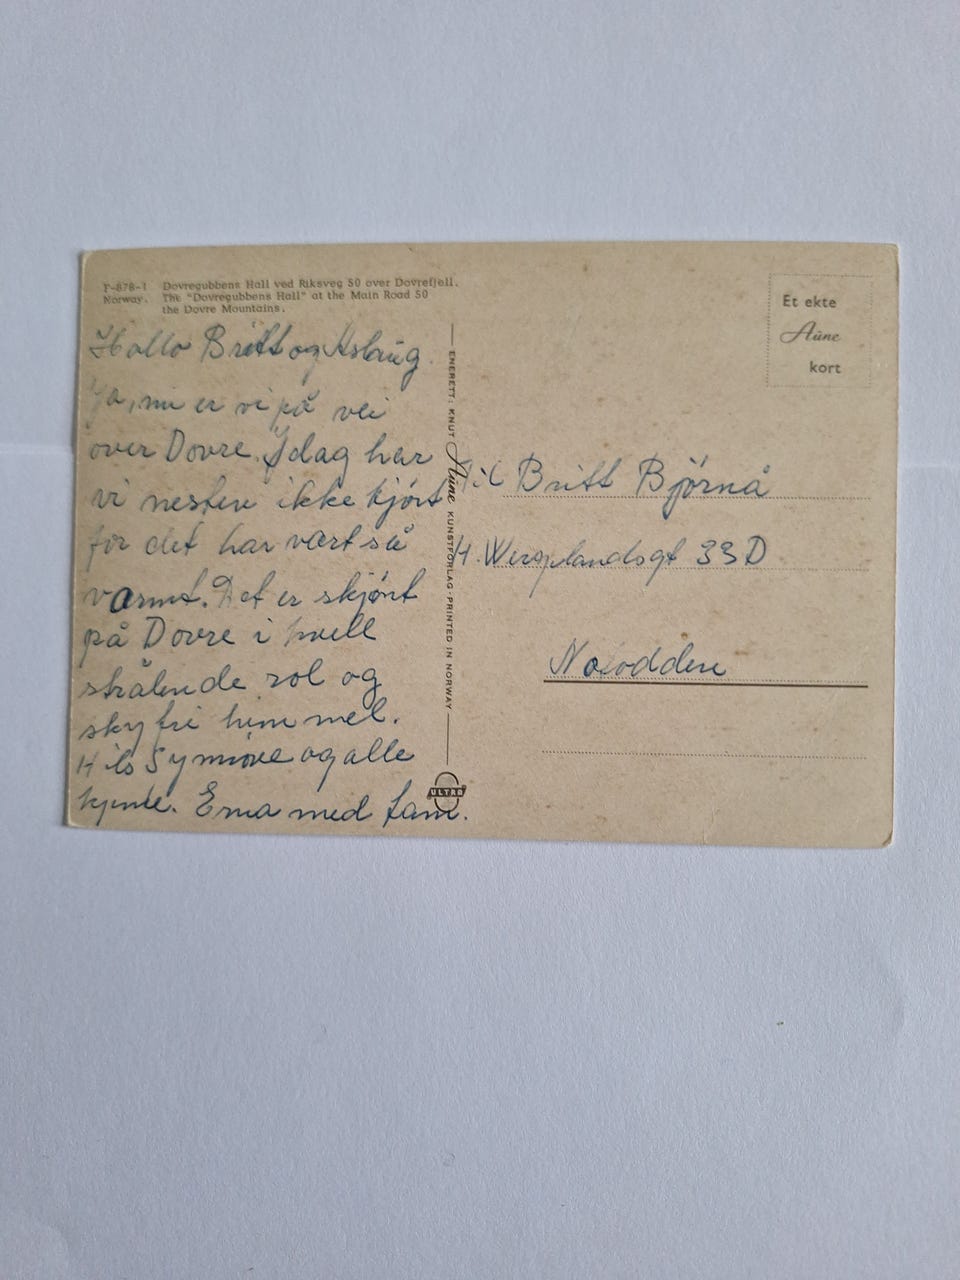 F-878-1 Dovregubbens Hall ved Riksveg 50 over Dovrefjell.
Norway. The "Dovregubbens Hall" at the Main Road 50
the Dovre Mountains.
Hallo Britt og Aslaug.
Ja, nu er vi på vei
over Dovre. Idag har
vi nesten ikke kjört
for det har vært så
varmt. Det er skjönt
på Dovre i kvell
strålende sol og
skyfri himmel.
Hils Synnöve og alle
kjente. Erna med fam.
ENERETT: KNUT Aune KUNSTFORLAG · PRINTED IN NORWAY
ULTRA
Et ekte
Aune
kort
Til Britt Björnå
H. Wergelandsgt 33D
Notodden